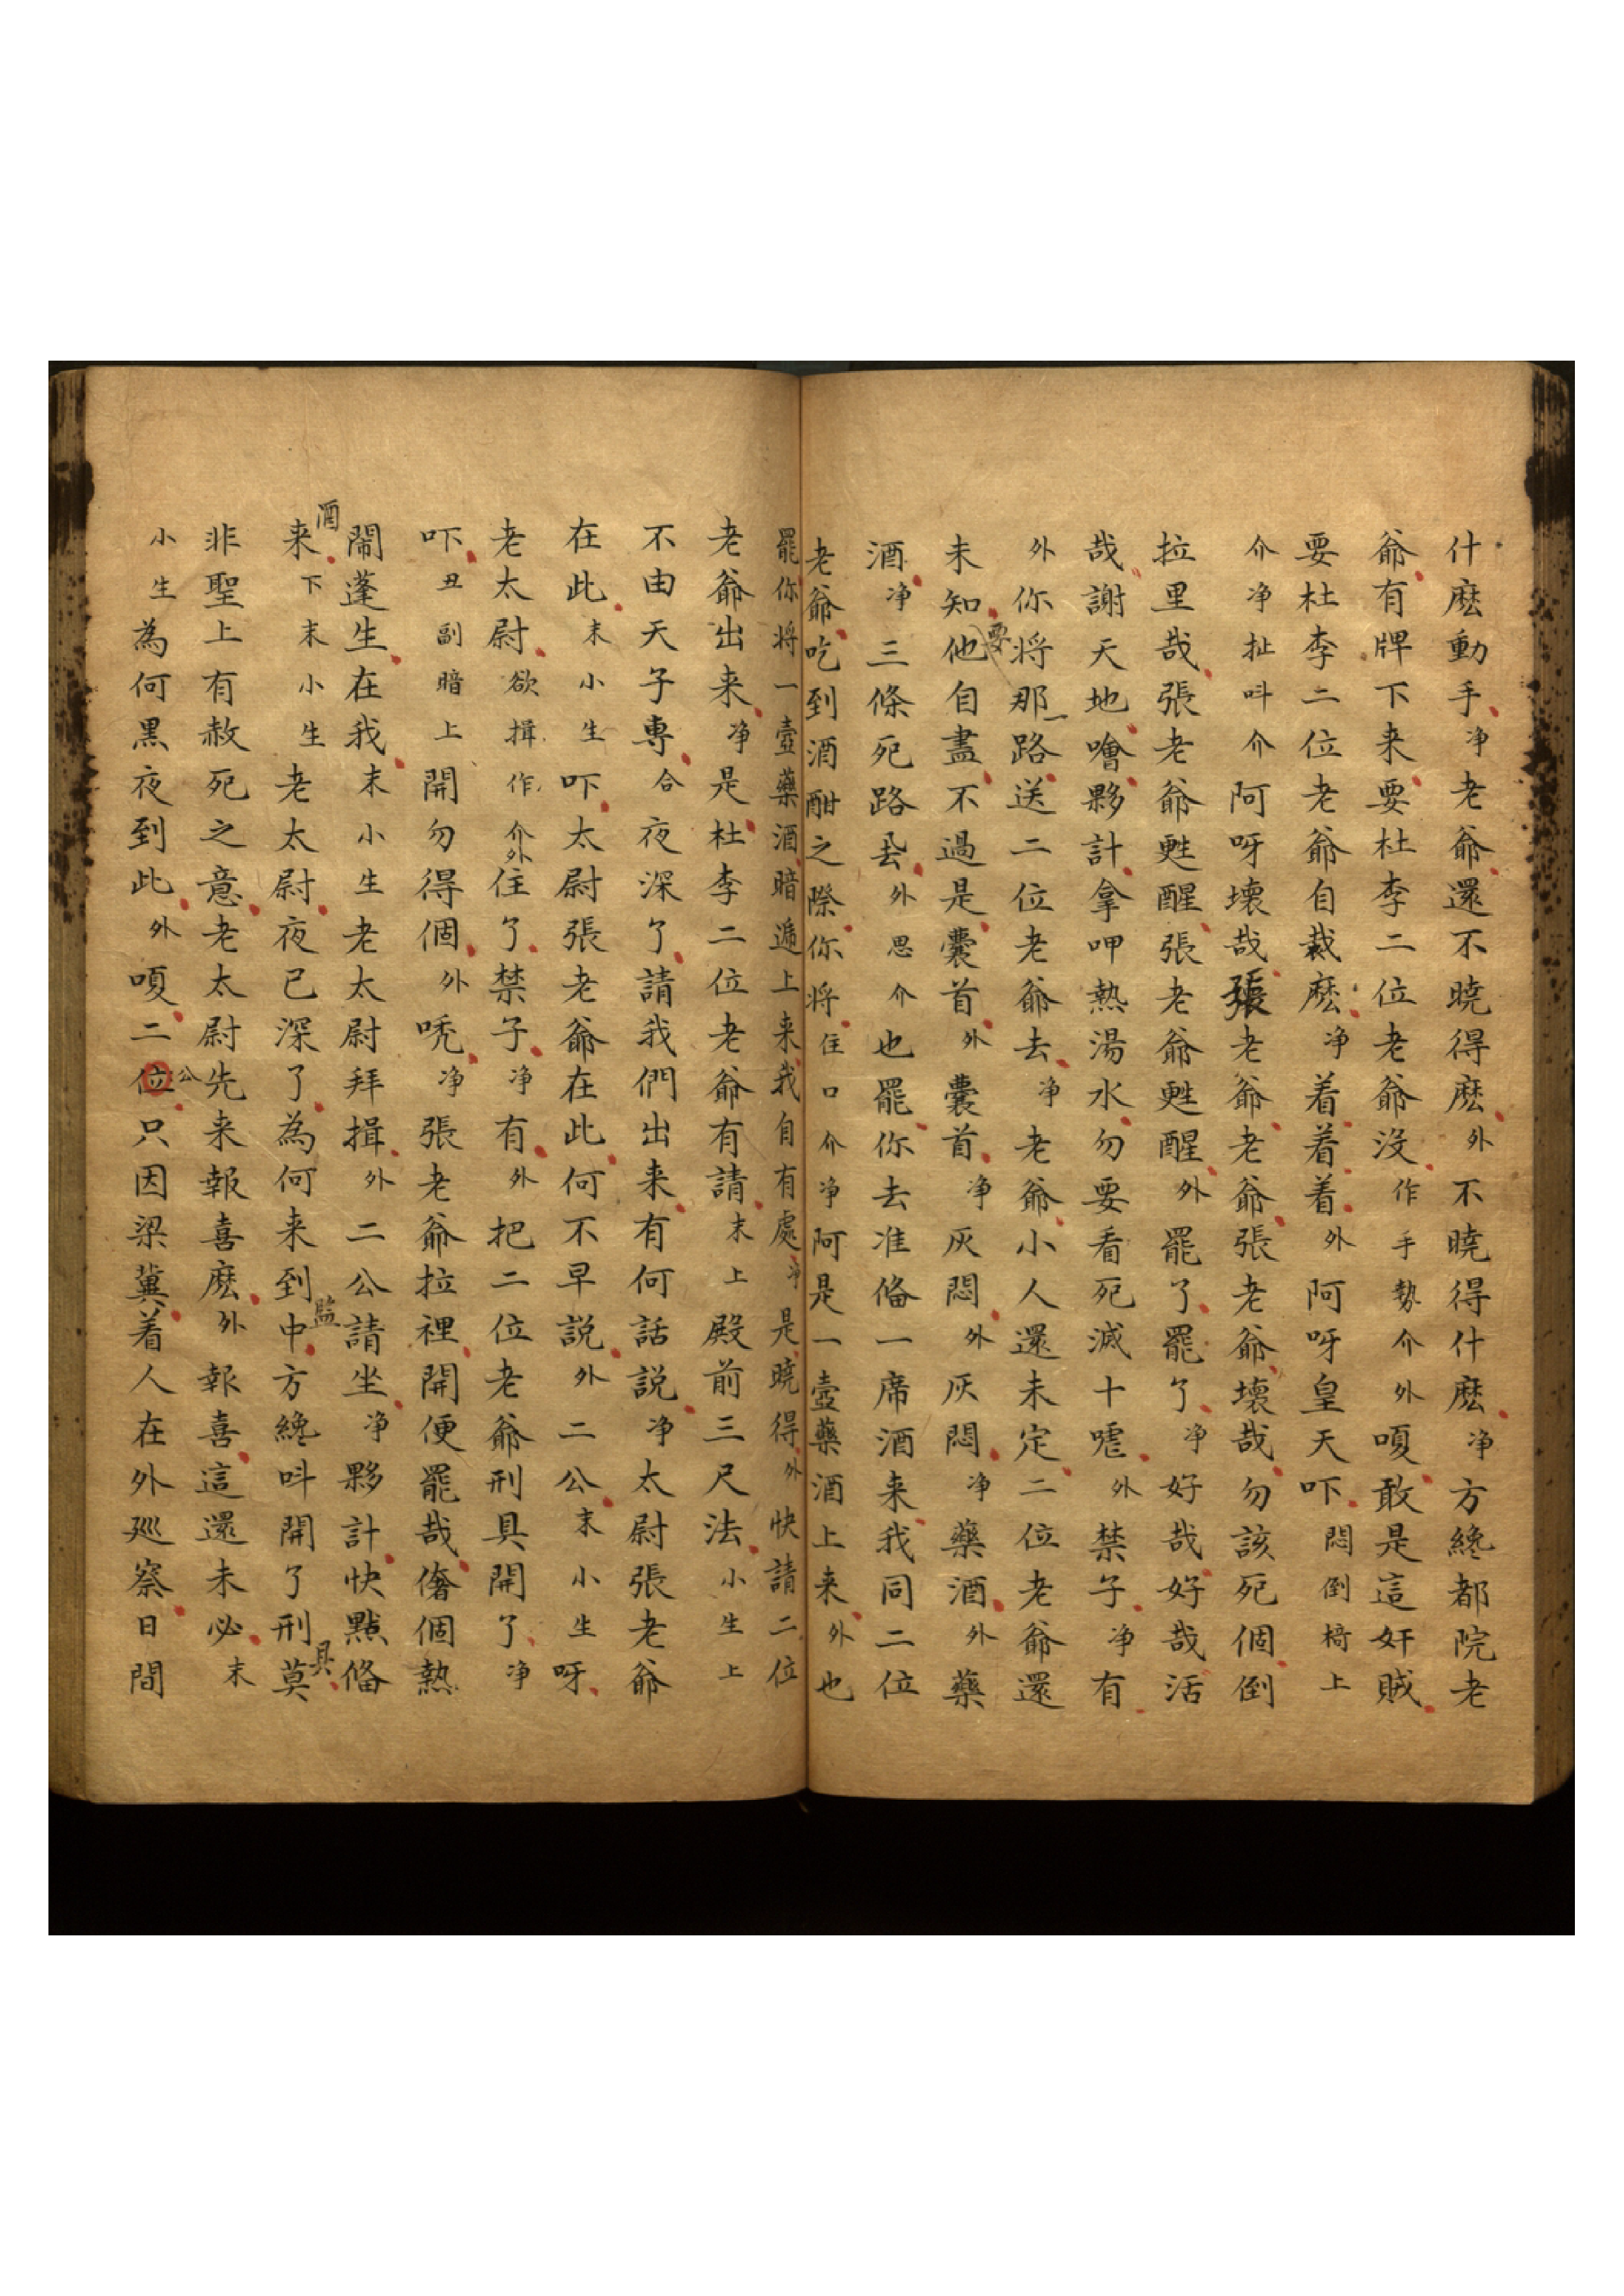 什麽動手净老爺還不曉得麽外不曉得什麽净方纔都院老
爺有牌下来要杜李二位老爺沒作手勢介外嗄敢是這奸賊
要杜李二位老爺自裁麽净着着着外阿呀皇天吓悶倒椅上
介净扯呌介阿呀壞哉張老爺老爺張老爺壞哉勿該死個倒
拉里哉張老爺甦醒張老爺甦醒外罷了罷了净好哉好哉活
哉謝天地噲夥計拿呷熱湯水勿要看死滅十嘘外禁子净有
外你將那一路送二位老爺去净老爺小人還未定二位老爺還
未知他要自盡不過是囊首外囊首净灰悶外灰悶净藥酒外藥
酒净三條死路外思介也罷你去准俻一席酒来我同二位
老爺吃到酒酣之際你將住口介净阿是一壺藥酒上来外也
罷你將一壺藥酒暗遞上来我自有處净是曉得外快請二位
老爺出来净是杜李二位老爺有請末上殿前三尺法小生上
不由天子專合夜深了請我們出来有何話説净太尉張老爺
在此末小生吓太尉張老爺在此何不早説外二公末小生呀
老太尉欲揖作介外住了禁子净有外把二位老爺刑具開了净
吓丑副暗上開勿得個外唗净張老爺拉裡開便罷哉奢個熱
鬧蓬生在我末小生老太尉拜揖外二公請坐净夥計快點俻
酒来下末小生老太尉夜已深了為何来到監中方纔呌開了刑具莫
非聖上有赦死之意老太尉先来報喜麽外報喜這還未必末
小生為何黑夜到此外嗄二位公只因梁冀着人在外廵察日間